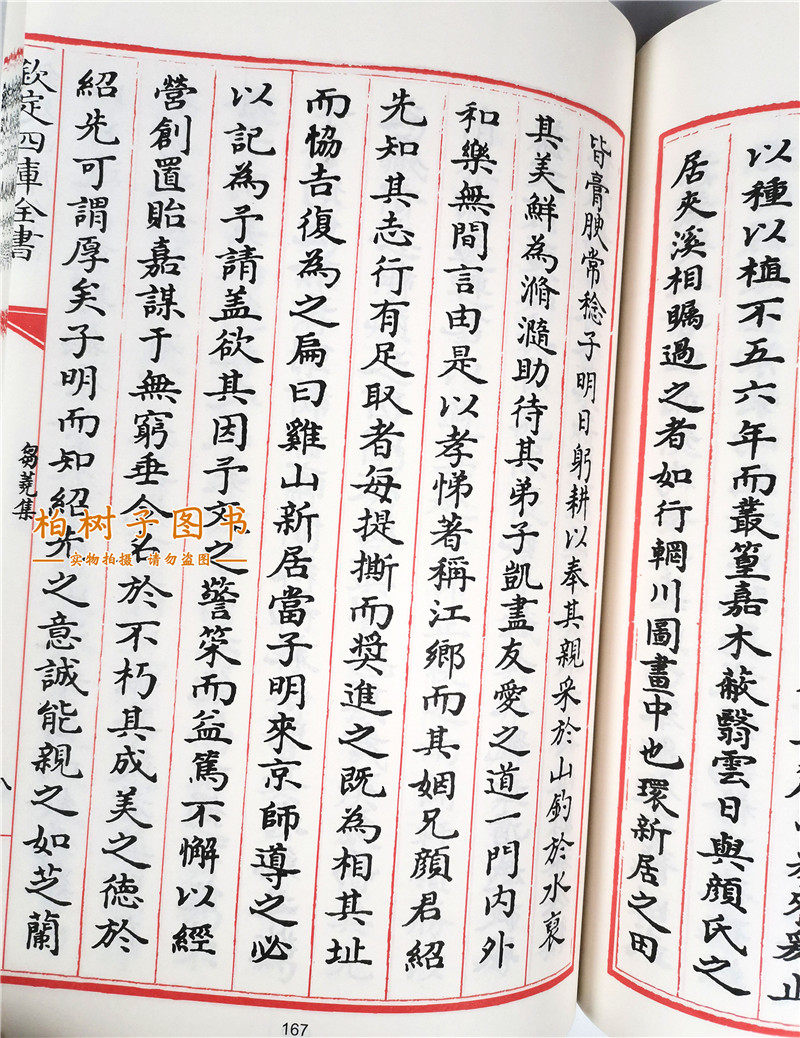 以種以植不五六年而叢篁嘉木蔽翳雲日與顏氏之
居夾溪相矚過之者如行輞川圖畫中也環新居之田
皆膏腴常稔子明日躬耕以奉其親采於山釣於水裒
其美鮮為滫瀡助待其弟子凱盡友愛之道一門內外
和樂無間言由是以孝悌著稱江鄉而其姻兄顏君紹
先知其志行有足取者每提撕而奨進之既為相其址
而恊吉復為之扁曰雞山新居當子明來京師導之必
以記為予請盖欲其因予文之警䇿而益篤不懈以經
營創置貽嘉謀于無窮垂令名於不朽其成美之徳於
紹先可謂厚矣子明而知紹先之意誠能親之如芝蘭
欽定四庫全書
芻蕘集
八
167
柏树子图书
实物拍摄 请勿盗图